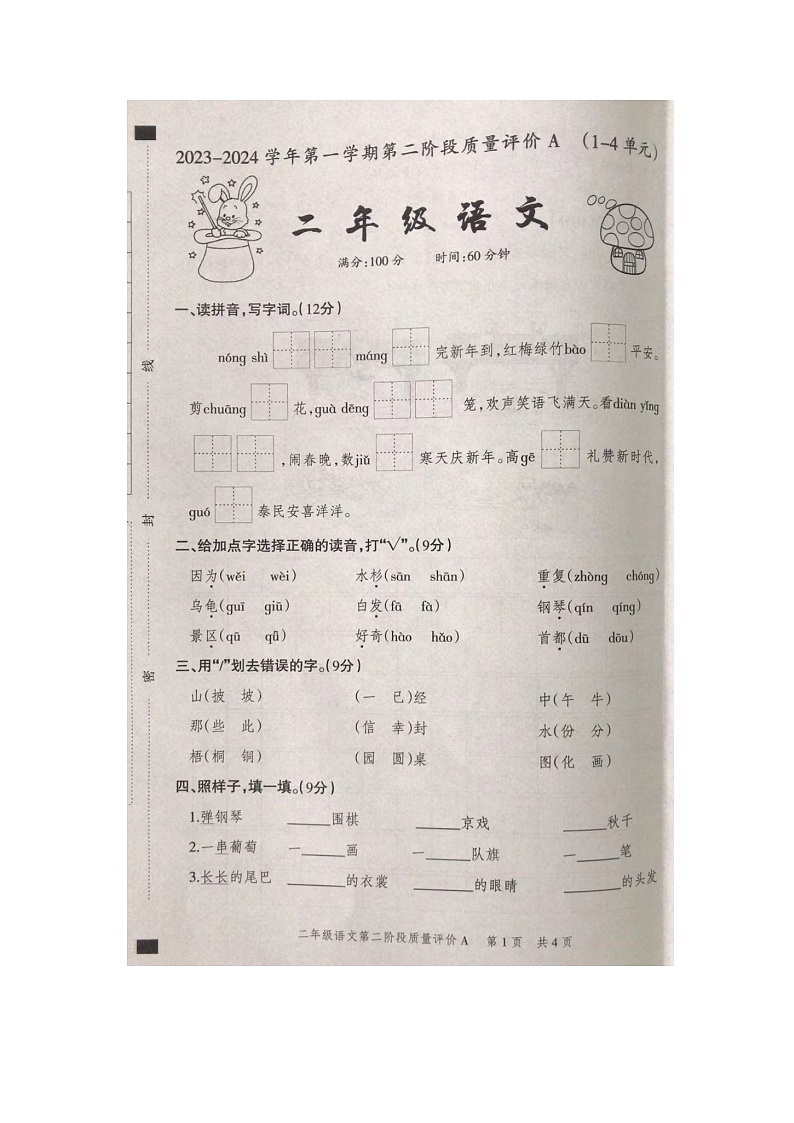 2023-2024 学年第一学期第二阶段质量评价 A (1-4 单元)
二年级语文
满分:100 分 时间:60 分钟
一、读拼音,写字词。(12分)
nóng shì máng 完新年到,红梅绿竹bào 平安。
剪chuāng 花,guà dēng 笼,欢声笑语飞满天。看diàn yǐng
,闹春晚,数jiǔ 寒天庆新年。高gē 礼赞新时代,
guó 泰民安喜洋洋。
二、给加点字选择正确的读音,打“√”。(9分)
因为(wěi wèi) 水杉(sān shān) 重复(zhòng chóng)
乌龟(guī giū) 白发(fā fà) 钢琴(qín qíng)
景区(qū qǖ) 好奇(hào hǎo) 首都(dū dōu)
三、用“/”划去错误的字。(9分)
山(披 坡) (一 已)经 中(午 牛)
那(些 此) (信 幸)封 水(份 分)
梧(桐 铜) (园 圆)桌 图(化 画)
四、照样子,填一填。(9分)
1.弹钢琴 ______围棋 ______京戏 ______秋千
2.一串葡萄 一______画 一______队旗 一______笔
3.长长的尾巴 ________的衣裳 ________的眼睛 ________的头发
二年级语文第二阶段质量评价 A 第 1 页 共 4 页
线
封
密